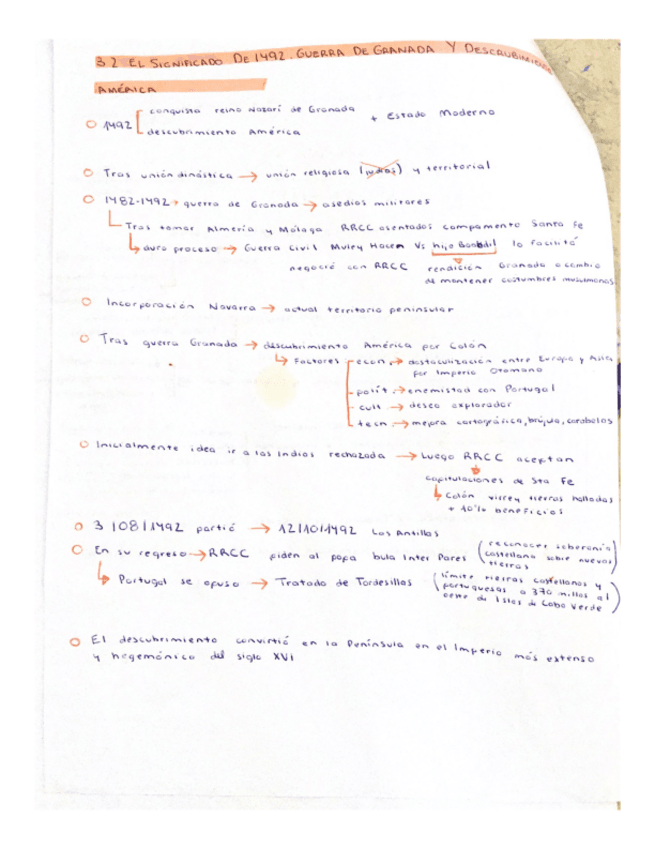 3.2 EL SIGNIFICADO DE 1492. GUERRA DE GRANADA Y DESCRUBIMIENTO
AMÉRICA
1492 conquista reino Nazarí de Granada + Estado Moderno
descubrimiento América
Tras unión dinástica → unión religiosa (judíos) y territorial
1482-1492 → guerra de Granada → asedios militares
Tras tomar Almería y Málaga RRCC asentados campamento Santa Fe
duro proceso → Guerra Civil Muley Hacen Vs hijo Boabdil lo facilitó
negoció con RRCC rendición Granada a cambio
de mantener costumbres musulmanas
Incorporación Navarra → actual territorio peninsular
Tras guerra Granada → descubrimiento América por Colón
Factores econ. → obstaculización entre Europa y Asia
por Imperio Otomano
polít. → enemistad con Portugal
cult → deseo explorador
tecn. → mejora cartográfica, brújula, carabelas
Inicialmente idea ir a las Indias rechazada → Luego RRCC aceptan
Capitulaciones de Sta Fe
Colón virrey tierras halladas
+ 10% beneficios
3/08/1492 partió → 12/10/1492 Las Antillas
En su regreso → RRCC piden al papa bula Inter Pares (reconocer soberanía
castellana sobre nuevas
tierras)
Portugal se opuso → Tratado de Tordesillas (límite tierras castellanas y
portuguesas a 370 millas al
oeste de Islas de Cabo Verde)
El descubrimiento convirtió en la Península en el Imperio más extenso
y hegemónico del siglo XVI